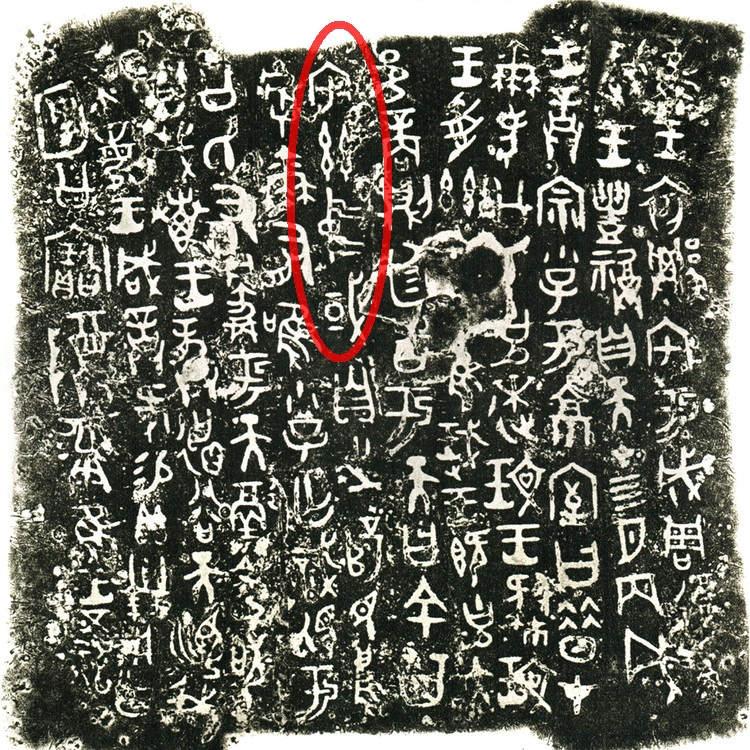 隹王初遷宅于成周復爯
珷王豐祼自天才四月丙戌
王誥宗小子于京室曰昔才
爾考公氏克逨玟王肆玟
王受茲隹珷王既克大
邑商則廷告于天曰余其
宅茲中或自之乂民烏
虖爾有唯小子亡識視于
公氏有爵于天徹令敬
享哉叀王龏德裕天訓我
不敏王咸誥何易貝卅朋用乍
公寶尊彝隹王五祀